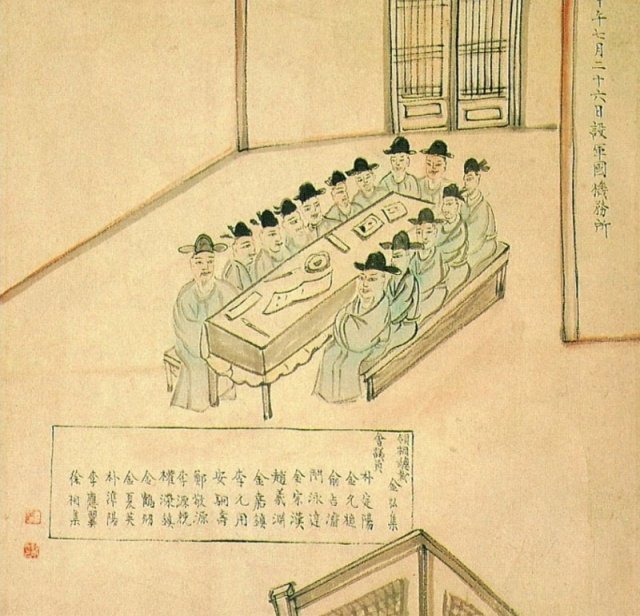 午七月二十六日設軍國機務所
領相總裁 金弘集
會議員
朴定陽
金允植
兪吉濬
閔泳達
金宗漢
趙義淵
金嘉鎭
李允用
安駉壽
鄭敬源
李源兢
權瀅鎭
金鶴羽
金夏英
朴準陽
李應翼
徐相集